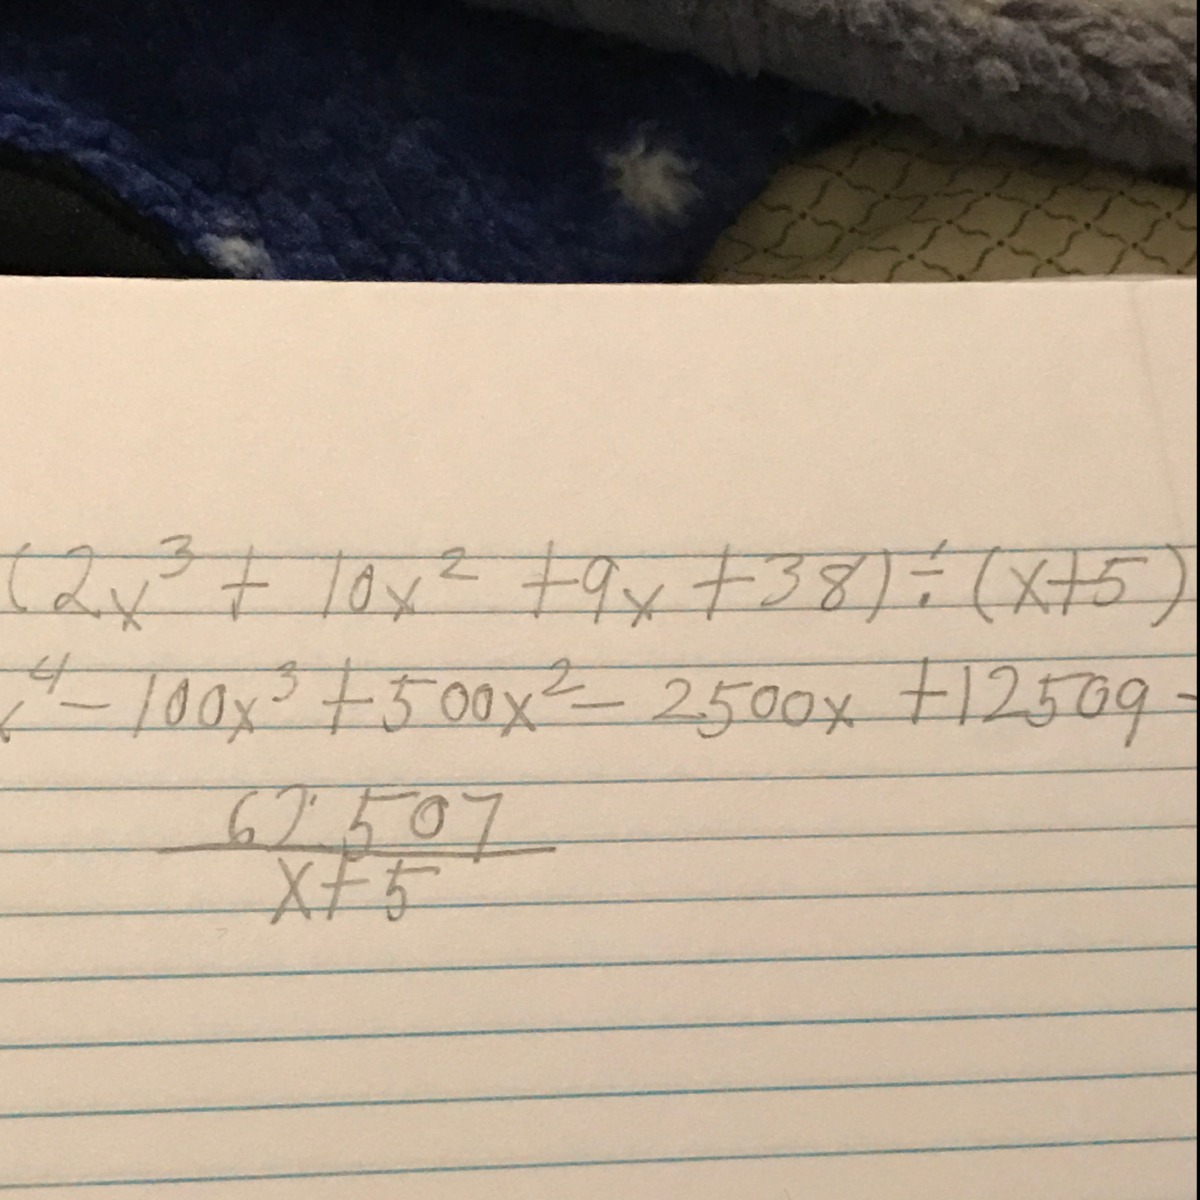 (2x³ + 10x² + 9x + 38) ÷ (x+5)
x⁴ - 100x³ + 500x² - 2500x + 12509 -
62,507
x+5